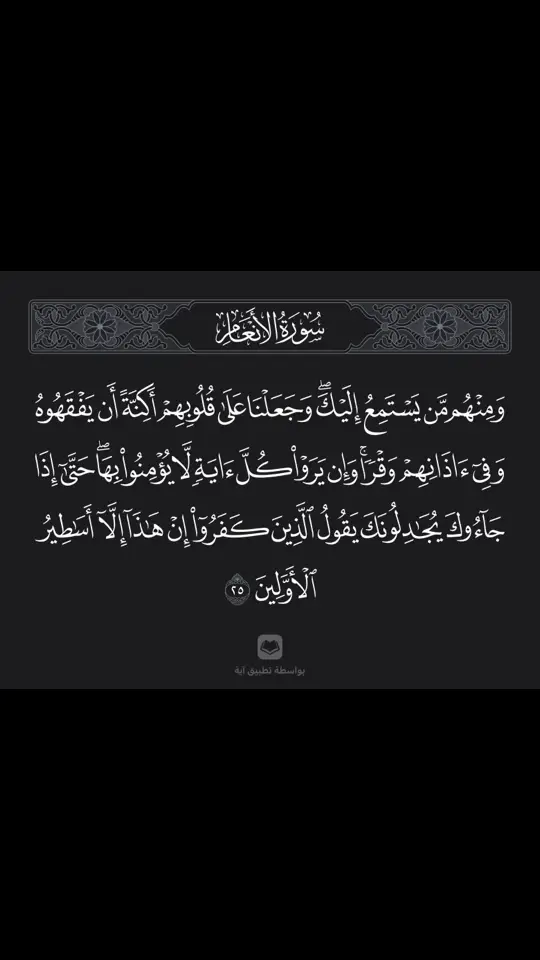 سُورَةُ الأَنْعَامِ
وَمِنْهُم مَّن يَسْتَمِعُ إِلَيْكَۖ وَجَعَلْنَا عَلَىٰ قُلُوبِهِمْ أَكِنَّةً أَن يَفْقَهُوهُ
وَفِىٓ ءَاذَانِهِمْ وَقْرًاۚ وَإِن يَرَوْا۟ كُلَّ ءَايَةٍ لَّا يُؤْمِنُوا۟ بِهَاۖ حَتَّىٰٓ إِذَا
جَآءُوكَ يُجَـٰدِلُونَكَ يَقُولُ ٱلَّذِينَ كَفَرُوٓا۟ إِنْ هَـٰذَآ إِلَّآ أَسَـٰطِيرُ
ٱلْأَوَّلِينَ ٢٥
بواسطة تطبيق آية